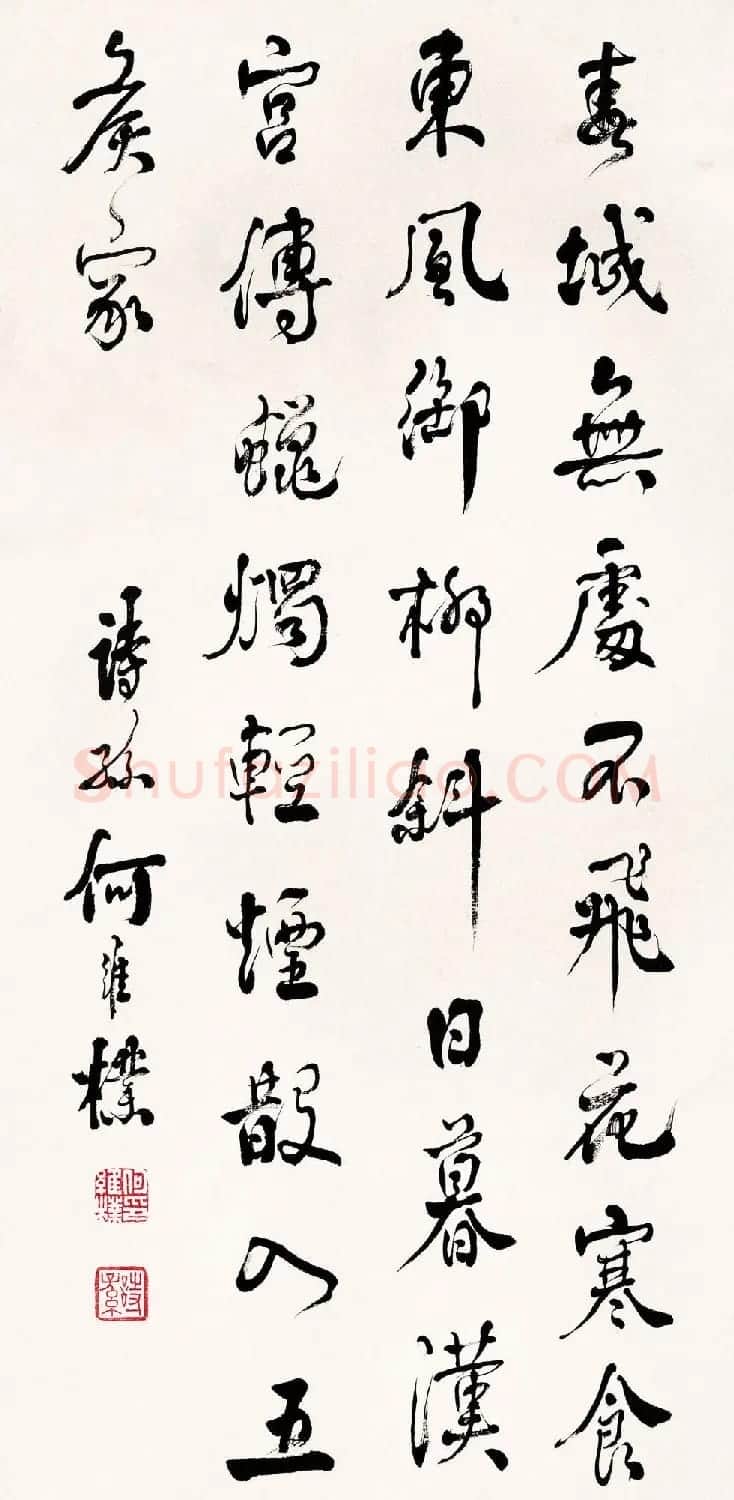 春城無處不飛花寒食
東風御柳斜日暮漢
宮傳蠟燭輕煙散入五
矦家
詩孫何維樸
何維樸印
詩孫
Shufaziliao.COM